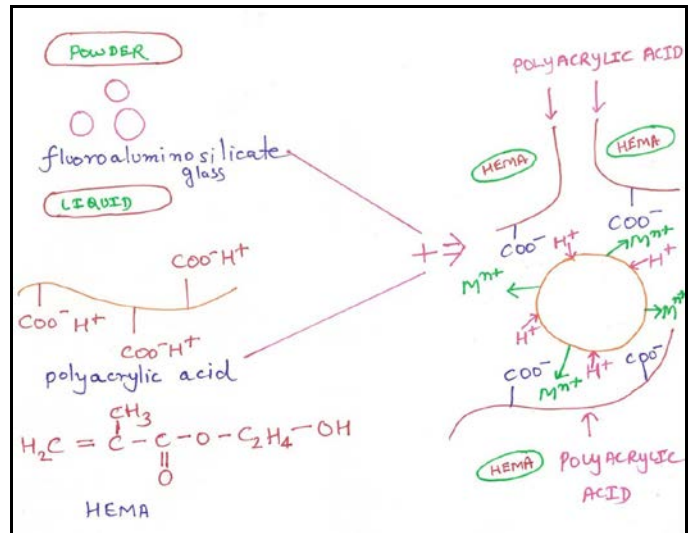 POWDER
fluoroaluminosilicate
glass
LIQUID
COO⁻H⁺
COO⁻H⁺
COO⁻H⁺
polyacrylic acid
CH₃
H₂C = C – C – O – C₂H₄ – OH
O
HEMA
+ ⇒
POLYACRYLIC ACID
HEMA
HEMA
COO⁻
COO⁻
H⁺
Mⁿ⁺
H⁺
Mⁿ⁺
Mⁿ⁺
H⁺
COO⁻
Mⁿ⁺
H⁺
COO⁻
HEMA
POLYACRYLIC
ACID